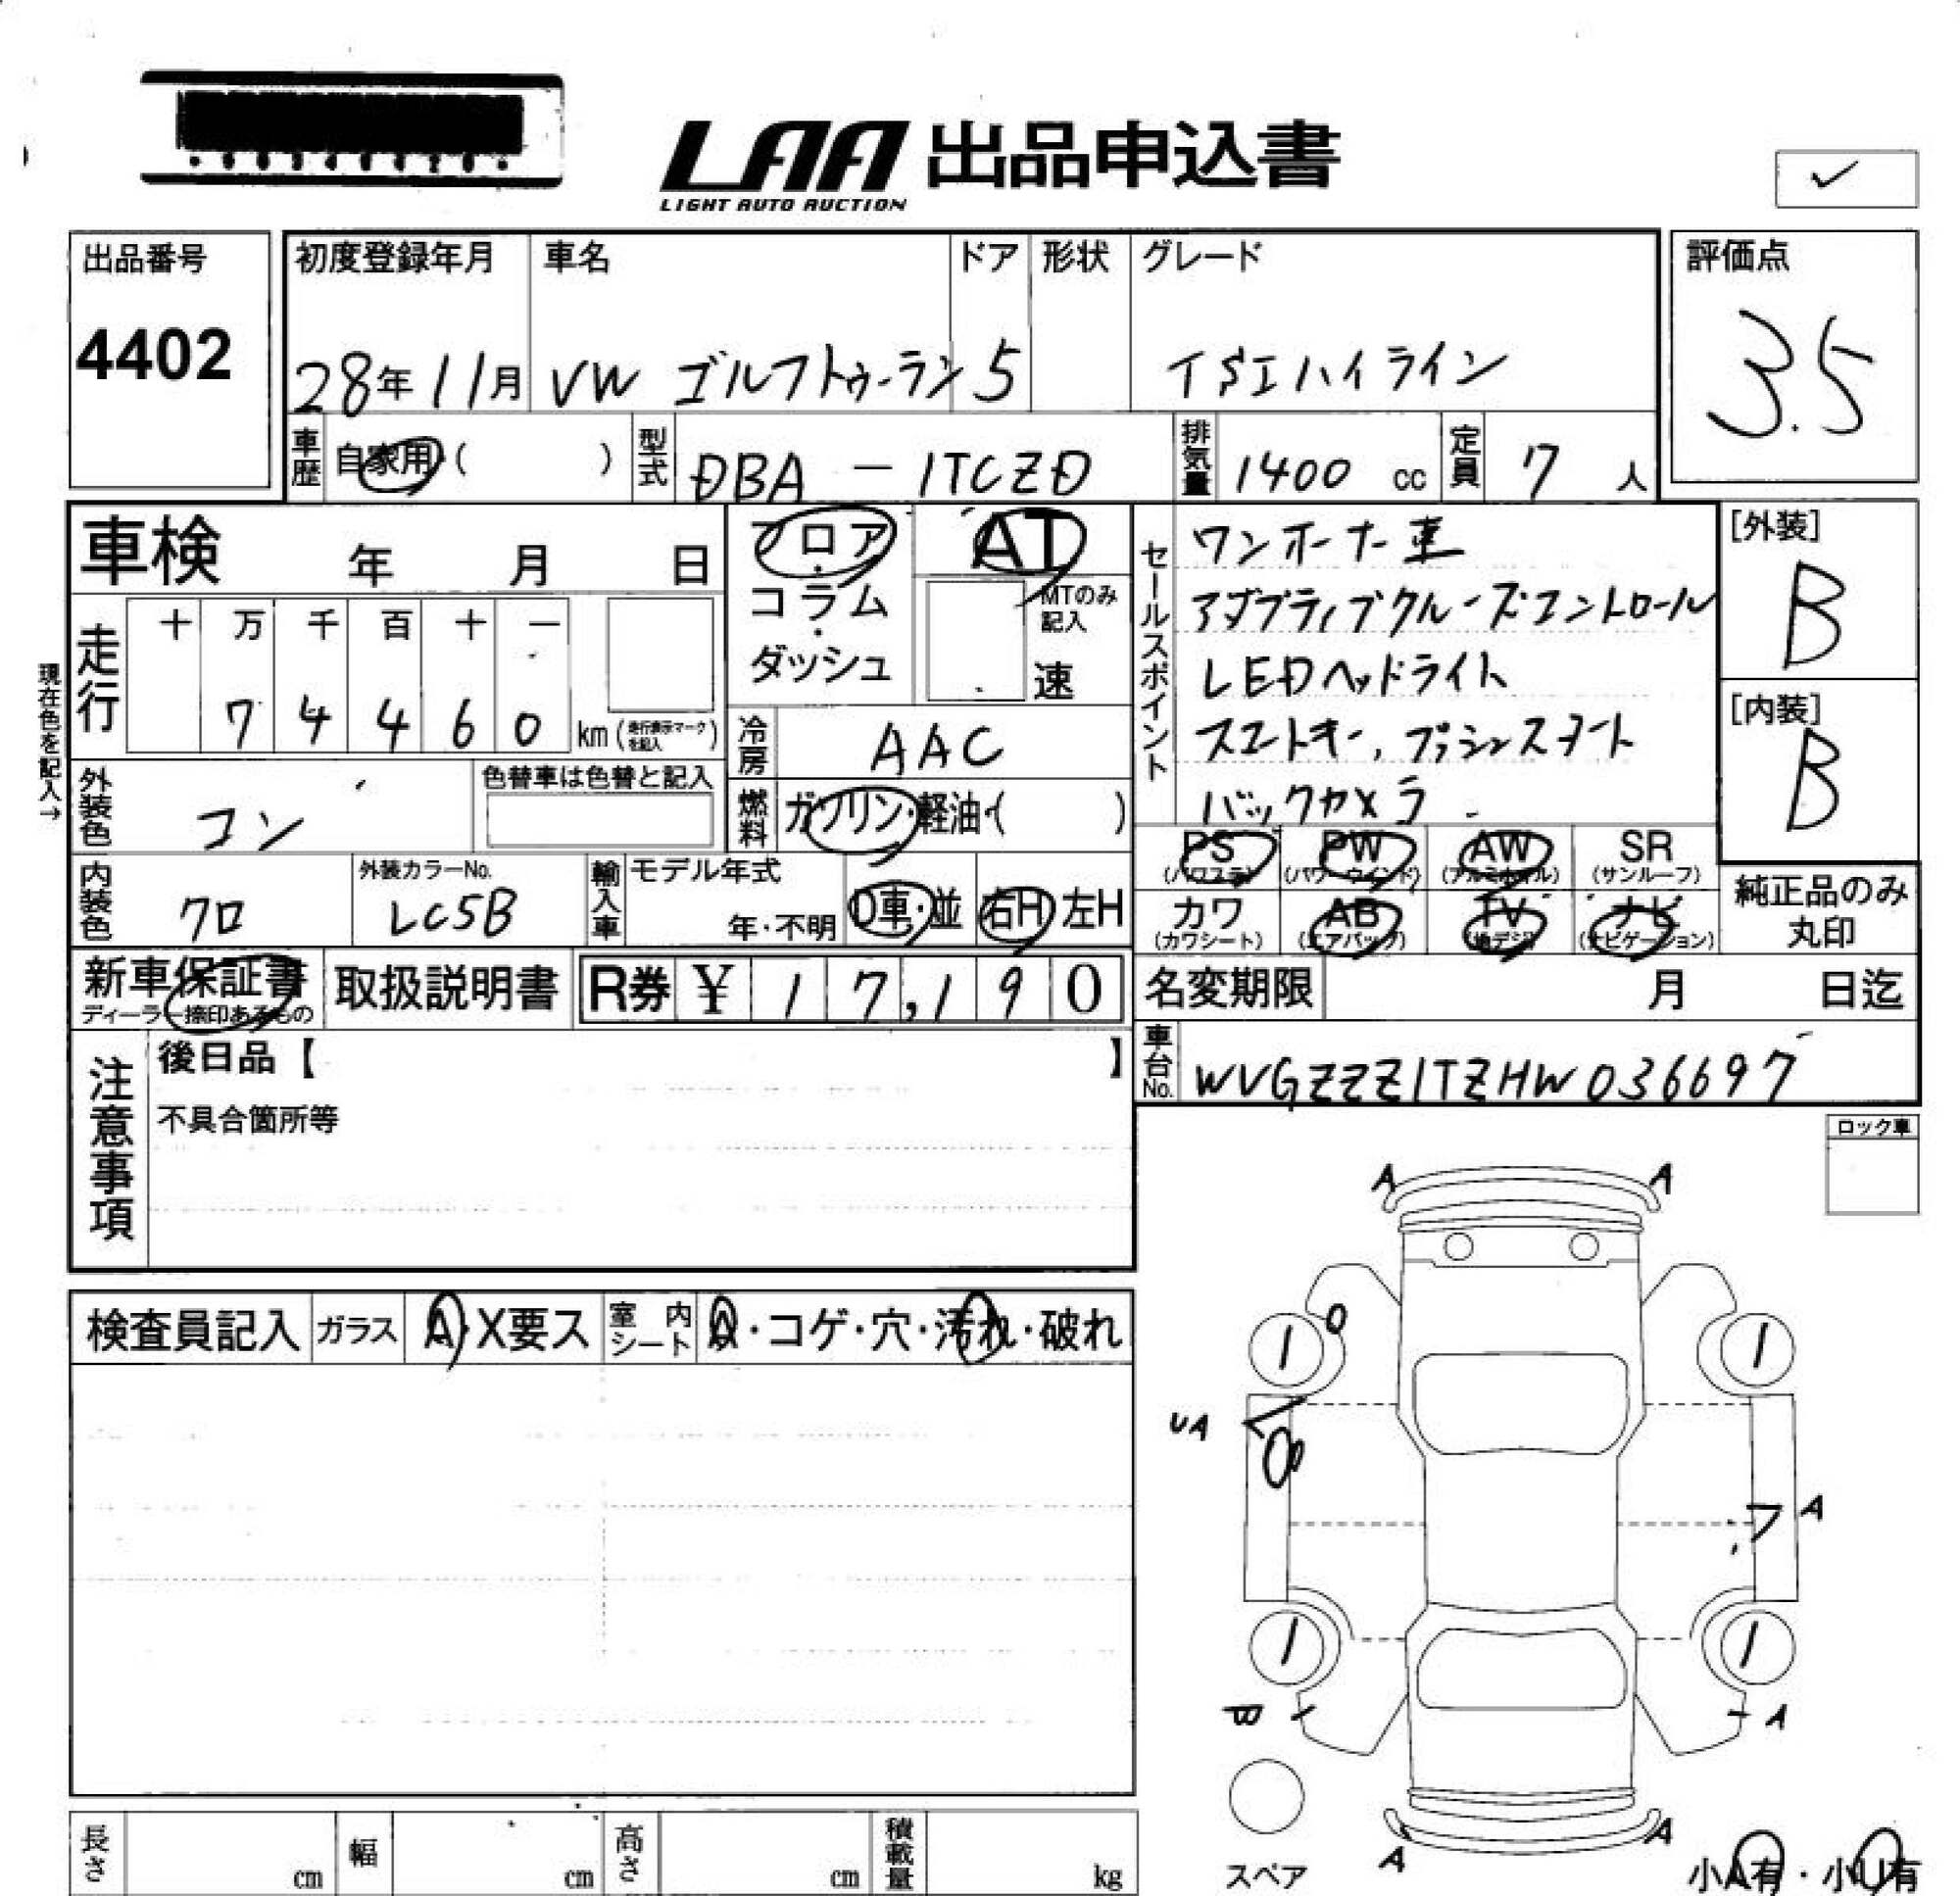 LAA 出品申込書
LIGHT AUTO AUCTION
✓
出品番号
4402
初度登録年月 車名 ドア 形状 グレード
28年11月 VW ゴルフトゥーラン 5 TSIハイライン
評価点
3.5
車歴 自家用( ) 型式 DBA-1TCZD 排気量 1400 cc 定員 7 人
車検 年 月 日
フロア・コラム・ダッシュ
AT
MTのみ記入
速
セールスポイント
ワンオーナー車
アダプティブクルーズコントロール
LEDヘッドライト
スマートキー, プッシュスタート
バックカメラ
[外装]
B
[内装]
B
走行 十 万 千 百 十 一
7 4 4 6 0 km (走行表示マークを記入)
現在色を記入→
冷房 AAC
外装色 コン 色替車は色替と記入
燃料 ガソリン・軽油・( )
内装色 クロ 外装カラーNo. LC5B 輸入車 モデル年式 年・不明 D車・並 右H 左H
PS (パワステ) PW (パワーウインド) AW (アルミホイル) SR (サンルーフ)
カワ (カワシート) AB (エアバッグ) TV (地デジ) ナビ (ナビゲーション)
純正品のみ丸印
新車保証書 ディーラー捺印あるもの 取扱説明書 R券 ¥ 17,190
名変期限 月 日迄
車台No. WVGZZZ1TZHW036697
注意事項
後日品【 】
不具合箇所等
ロック車
検査員記入 ガラス A・X要ス 室内シート A・コゲ・穴・汚れ・破れ
A A
UA
A
A
A A
スペア
小A有・小U有
長さ cm 幅 cm 高さ cm 積載量 kg